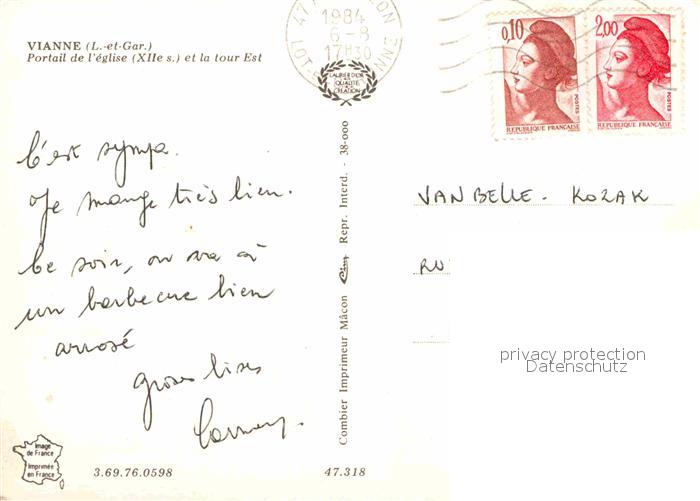 VIANNE (L.-et-Gar.)
Portail de l'église (XIIe s.) et la tour Est
1984
6-8
17H30
LAURÉ D'OR
DE LA
QUALITÉ
CRÉATION
0,10
POSTES
REPUBLIQUE FRANÇAISE
2,00
POSTES
REPUBLIQUE FRANÇAISE
C'est sympa.
Je mange très bien.
Ce soir, on va à
un barbecue bien
arrosé
Groses bises
Combier Imprimeur Mâcon Cim Repr. Interd. - 38-000
VANBELLE. KOZAK
RU
privacy protection
Datenschutz
Image
de France
Imprimée
en France
3.69.76.0598
47.318